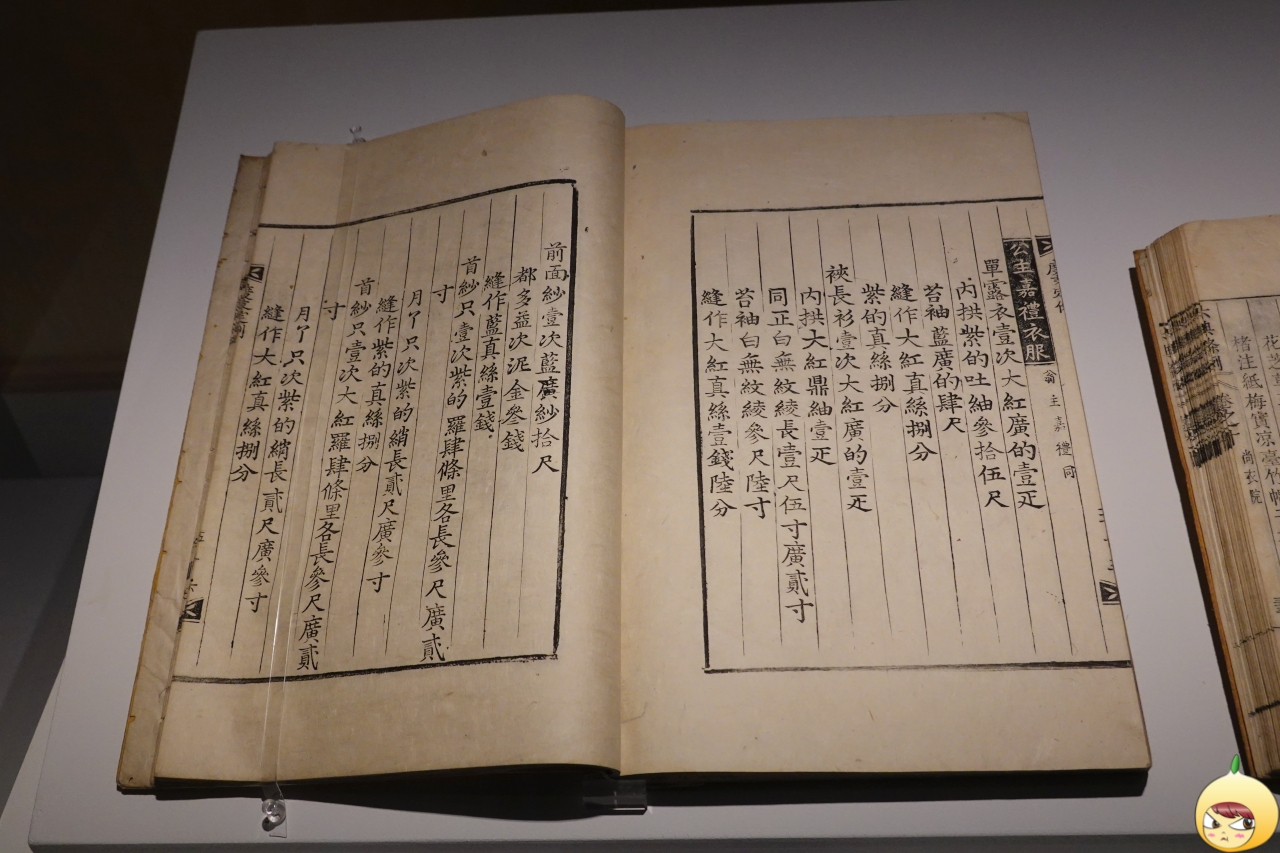 公主嘉禮衣服 翁主嘉禮同
單露衣壹次大紅廣的壹疋
內拱紫的吐紬參拾伍尺
苔袖藍廣的肆尺
縫作大紅真絲捌分
紫的真絲捌分
裌長衫壹次大紅廣的壹疋
內拱大紅鼎紬壹疋
同正白無紋綾長壹尺伍寸廣貳寸
苔袖白無紋綾參尺陸寸
縫作大紅真絲壹錢陸分
前面紗壹次藍廣紗拾尺
都多益次泥金參錢
縫作藍真絲壹錢
首紗只壹次紫的羅肆條里各長參尺廣貳
寸
月亇只次紫的綃長貳尺廣參寸
縫作紫的真絲捌分
首紗只壹次大紅羅肆條里各長參尺廣貳
寸
月亇只次紫的綃長貳尺廣參寸
縫作大紅真絲捌分
花
楮注紙梅實凉亳竹
尙衣院